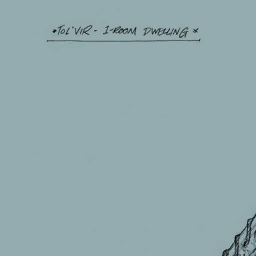 *TOL'VIR - 1-ROOM DWELLING *